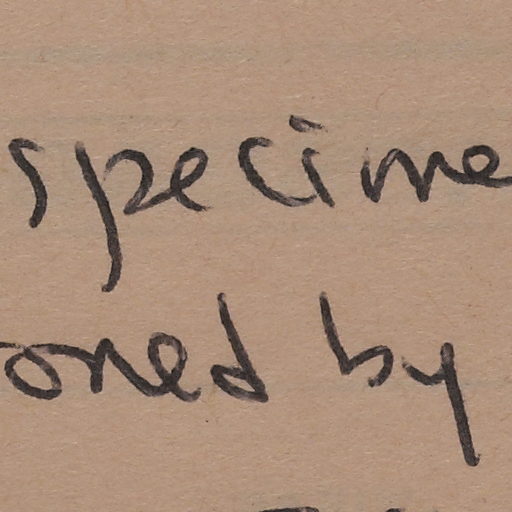 specime
oned by